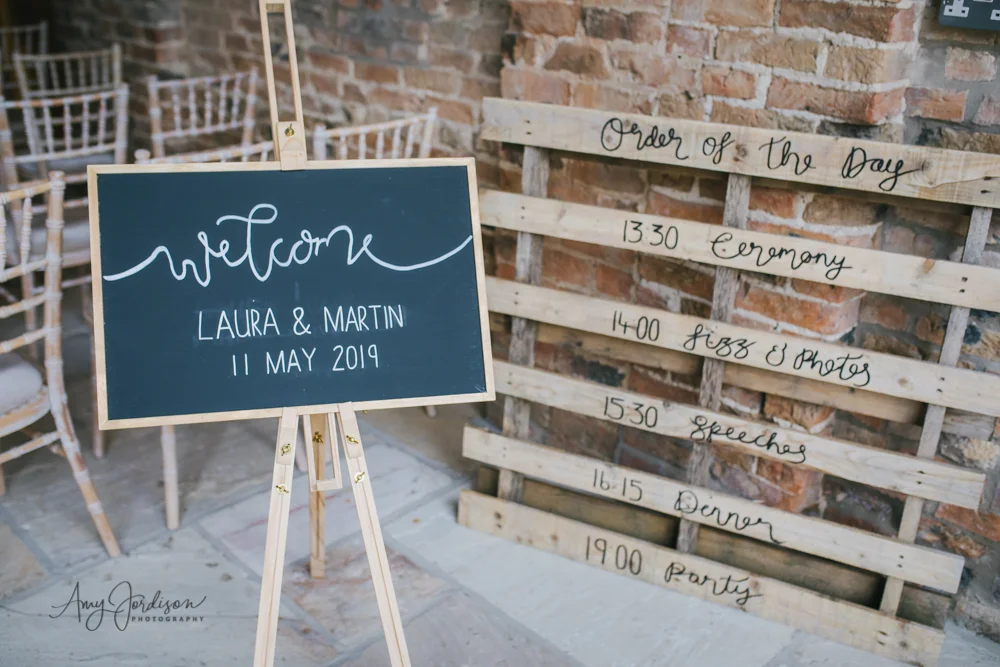 welcome
LAURA & MARTIN
11 MAY 2019
Order of the Day
13:30 Ceremony
14:00 fizz & Photos
15:30 Speeches
16:15 Dinner
19:00 Party
Amy Jordison
PHOTOGRAPHY